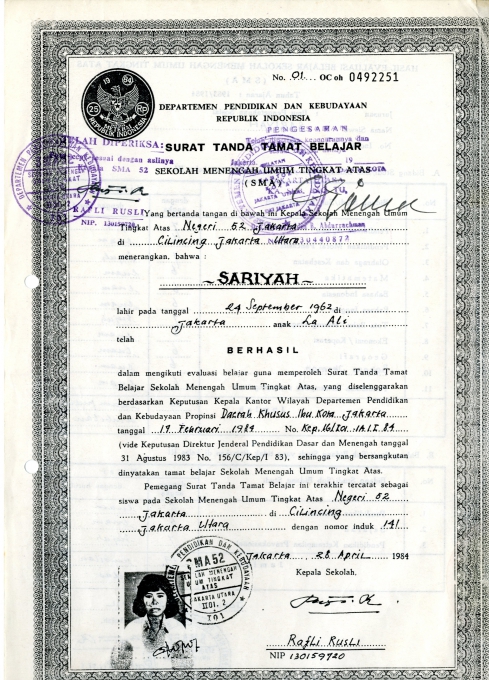 No. 01. OC oh 0492251
DEPARTEMEN PENDIDIKAN DAN KEBUDAYAAN
REPUBLIK INDONESIA
PENGESAHAN
TELAH DIPERIKSA:
SURAT TANDA TAMAT BELAJAR
sesuai dengan aslinya
SMA 52
SEKOLAH MENENGAH UMUM TINGKAT ATAS
(SMA)
RAFLI RUSLI
NIP.
Yang bertanda tangan di bawah ini Kepala Sekolah Menengah Umum
Tingkat Atas Negeri 52 Jakarta
di Cilincing Jakarta Utara
menerangkan, bahwa :
SARIYAH
lahir pada tanggal 24 September 1962 di
Jakarta anak La Ali
telah
BERHASIL
dalam mengikuti evaluasi belajar guna memperoleh Surat Tanda Tamat
Belajar Sekolah Menengah Umum Tingkat Atas, yang diselenggarakan
berdasarkan Keputusan Kepala Kantor Wilayah Departemen Pendidikan
dan Kebudayaan Propinsi Daerah Khusus Ibu Kota Jakarta
tanggal 17 Februari 1984 No.
(vide Keputusan Direktur Jenderal Pendidikan Dasar dan Menengah tanggal
31 Agustus 1983 No. 156/C/Kep/I 83), sehingga yang bersangkutan
dinyatakan tamat belajar Sekolah Menengah Umum Tingkat Atas.
Pemegang Surat Tanda Tamat Belajar ini terakhir tercatat sebagai
siswa pada Sekolah Menengah Umum Tingkat Atas Negeri 52
Jakarta di Cilincing
Jakarta Utara dengan nomor induk 141
Jakarta, 28 April 1984
Kepala Sekolah,
PENDIDIKAN DAN KEBUDAYAAN
SMA 52
JAKARTA UTARA
Rafli Rusli
NIP 130159720